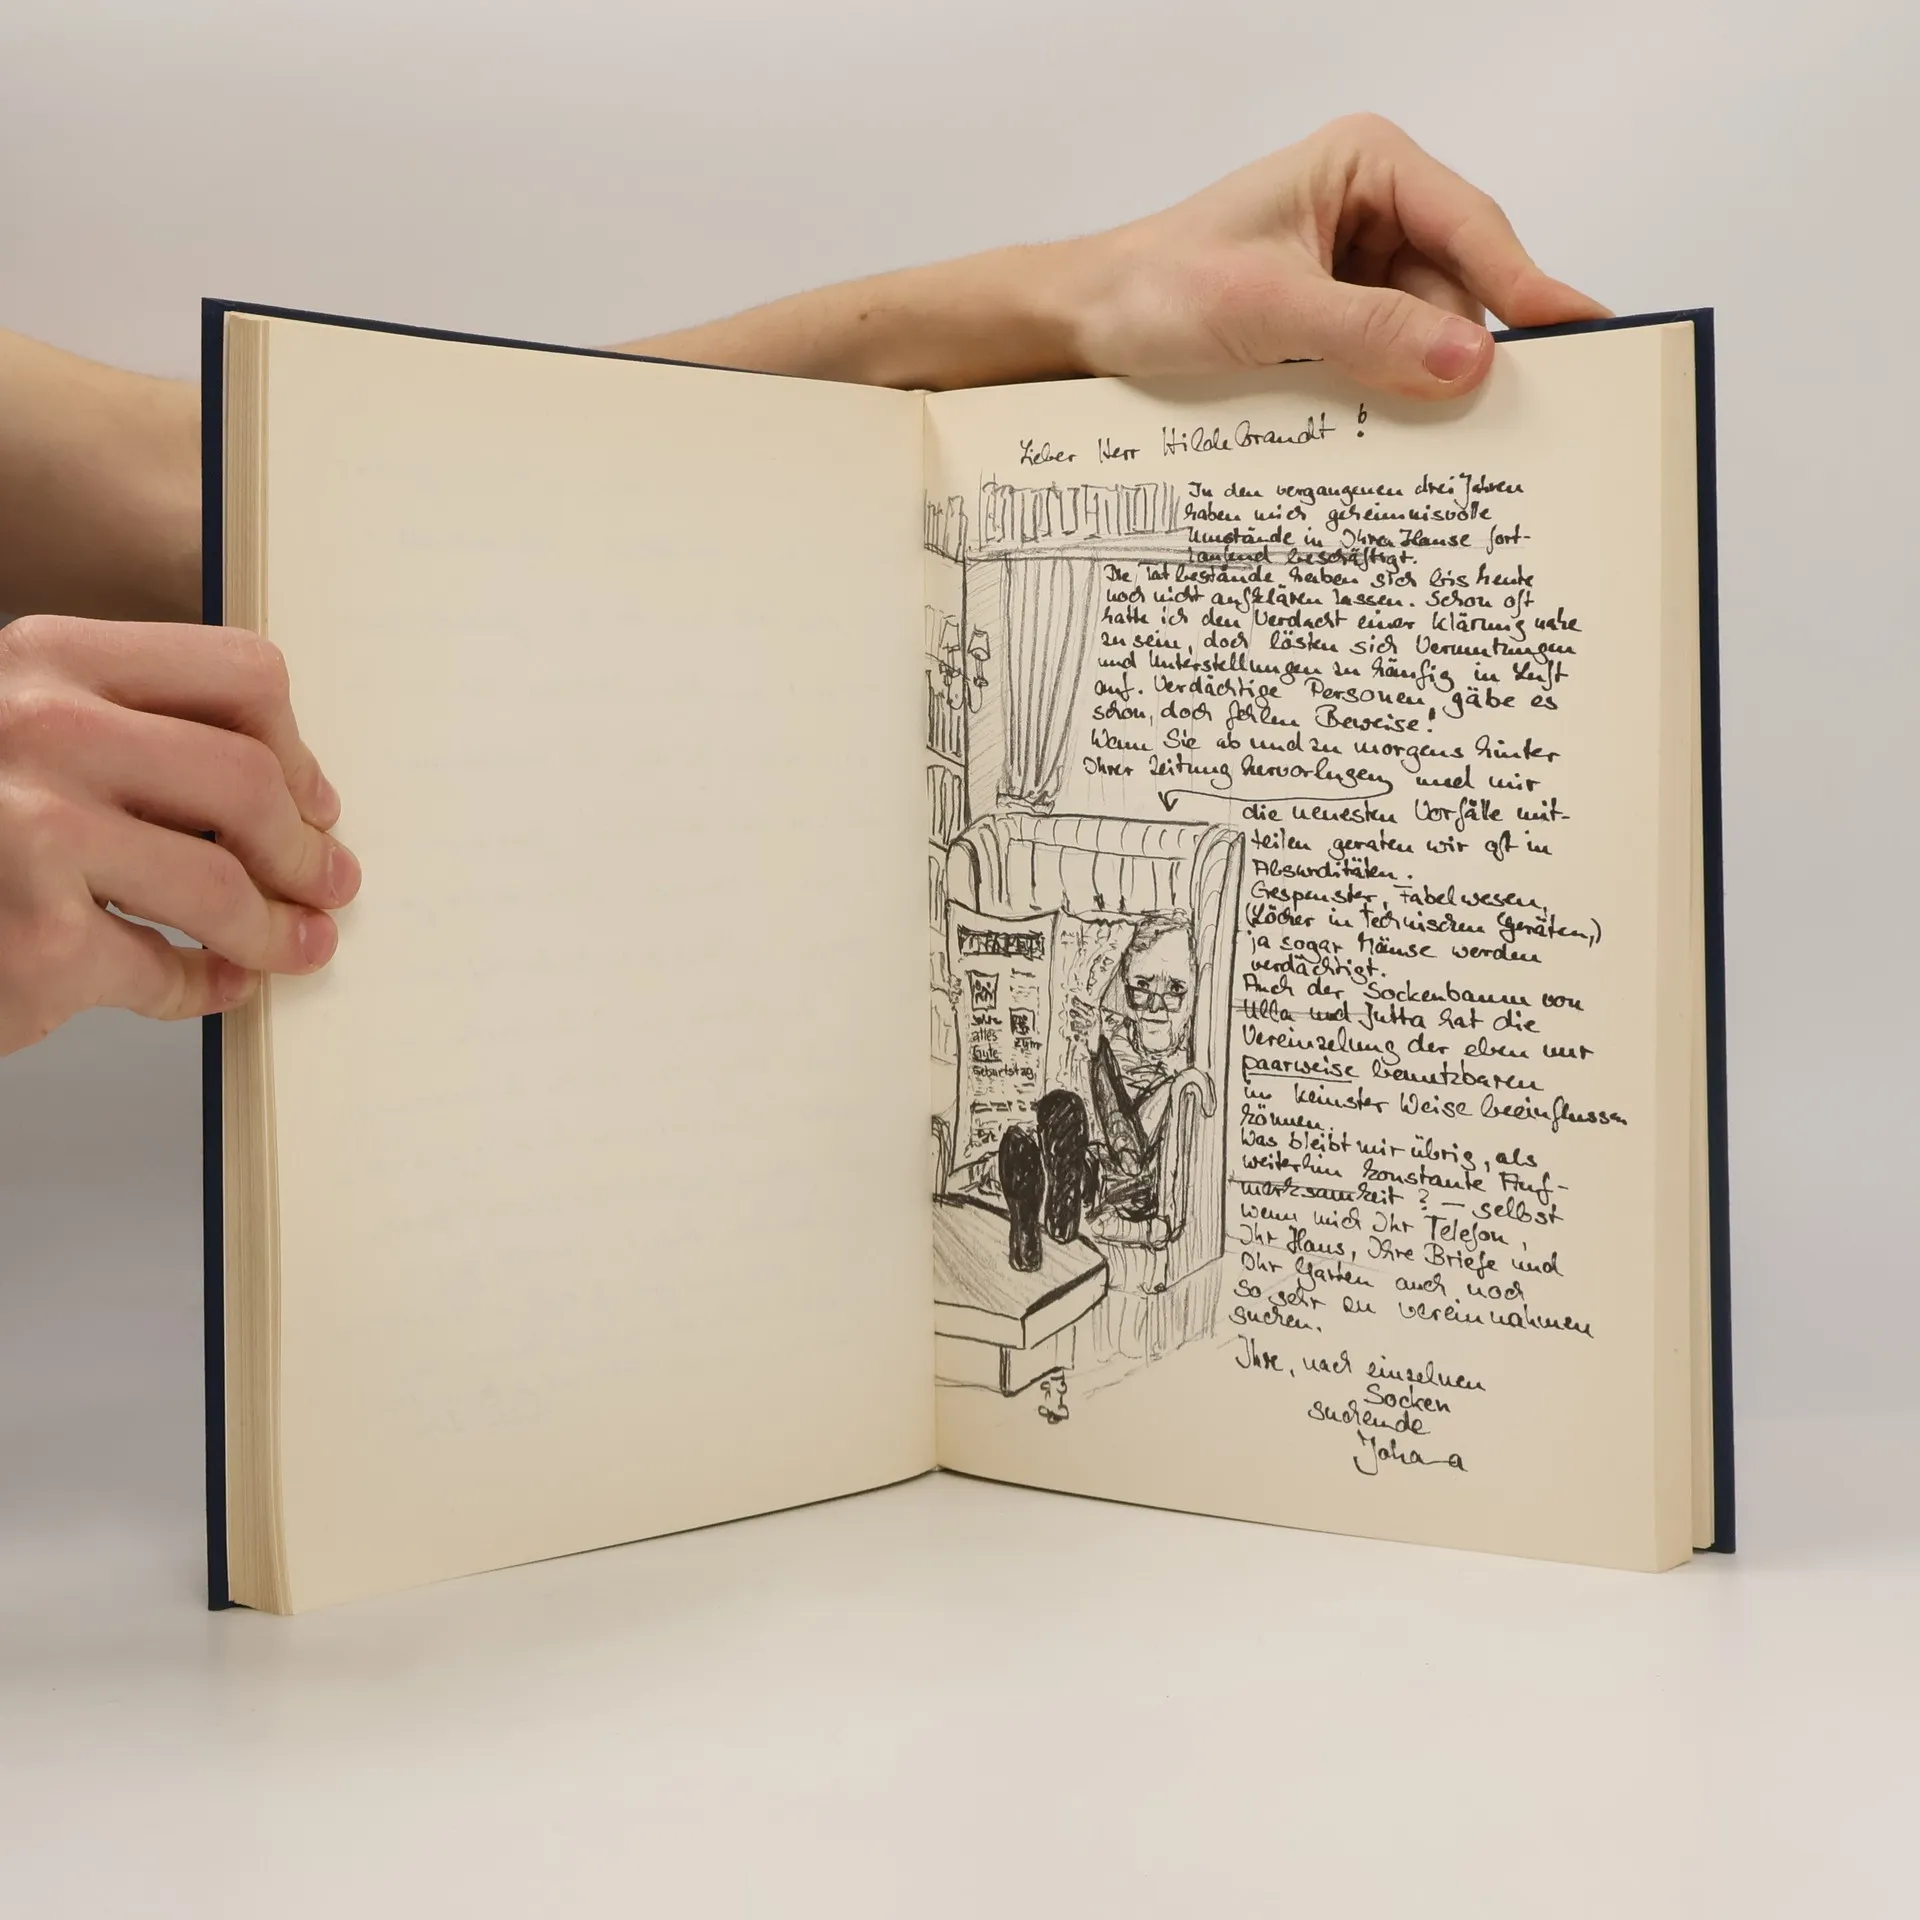 Lieber Herr Hildebrandt!
In den vergangenen drei Jahren
haben mich geheimnisvolle
Umstände in Ihrem Hause fort-
laufend beschäftigt.
Die Tatbestände haben sich bis heute
noch nicht aufklären lassen. Schon oft
hatte ich den Verdacht einer Klärung nahe
zu sein, doch lösten sich Vermutungen
und Unterstellungen zu häufig in Luft
auf. Verdächtige Personen, gäbe es
schon, doch fehlen Beweise!
Wenn Sie ab und zu morgens hinter
Ihrer Zeitung hervorlugen und mir
die neuesten Vorfälle mit-
teilen geraten wir oft in
Absurditäten.
Gespenster, Fabelwesen,
(Löcher in technischen Geräten,)
ja sogar Mäuse werden
verdächtigt.
Auch der Sockenbaum von
Ulla und Jutta hat die
Vereinzelung der eben nur
paarweise benutzbaren
in keinster Weise beeinflussen
können.
Was bleibt mir übrig, als
weiterhin konstante Auf-
merksamkeit? – selbst
wenn mich Ihr Telefon,
Ihr Haus, Ihre Briefe und
Ihr Garten auch noch
so sehr zu vereinnahmen
suchen.
Ihre, nach einzelnen
Socken
suchende
Johanna
alles
Gute
zum
Geburtstag